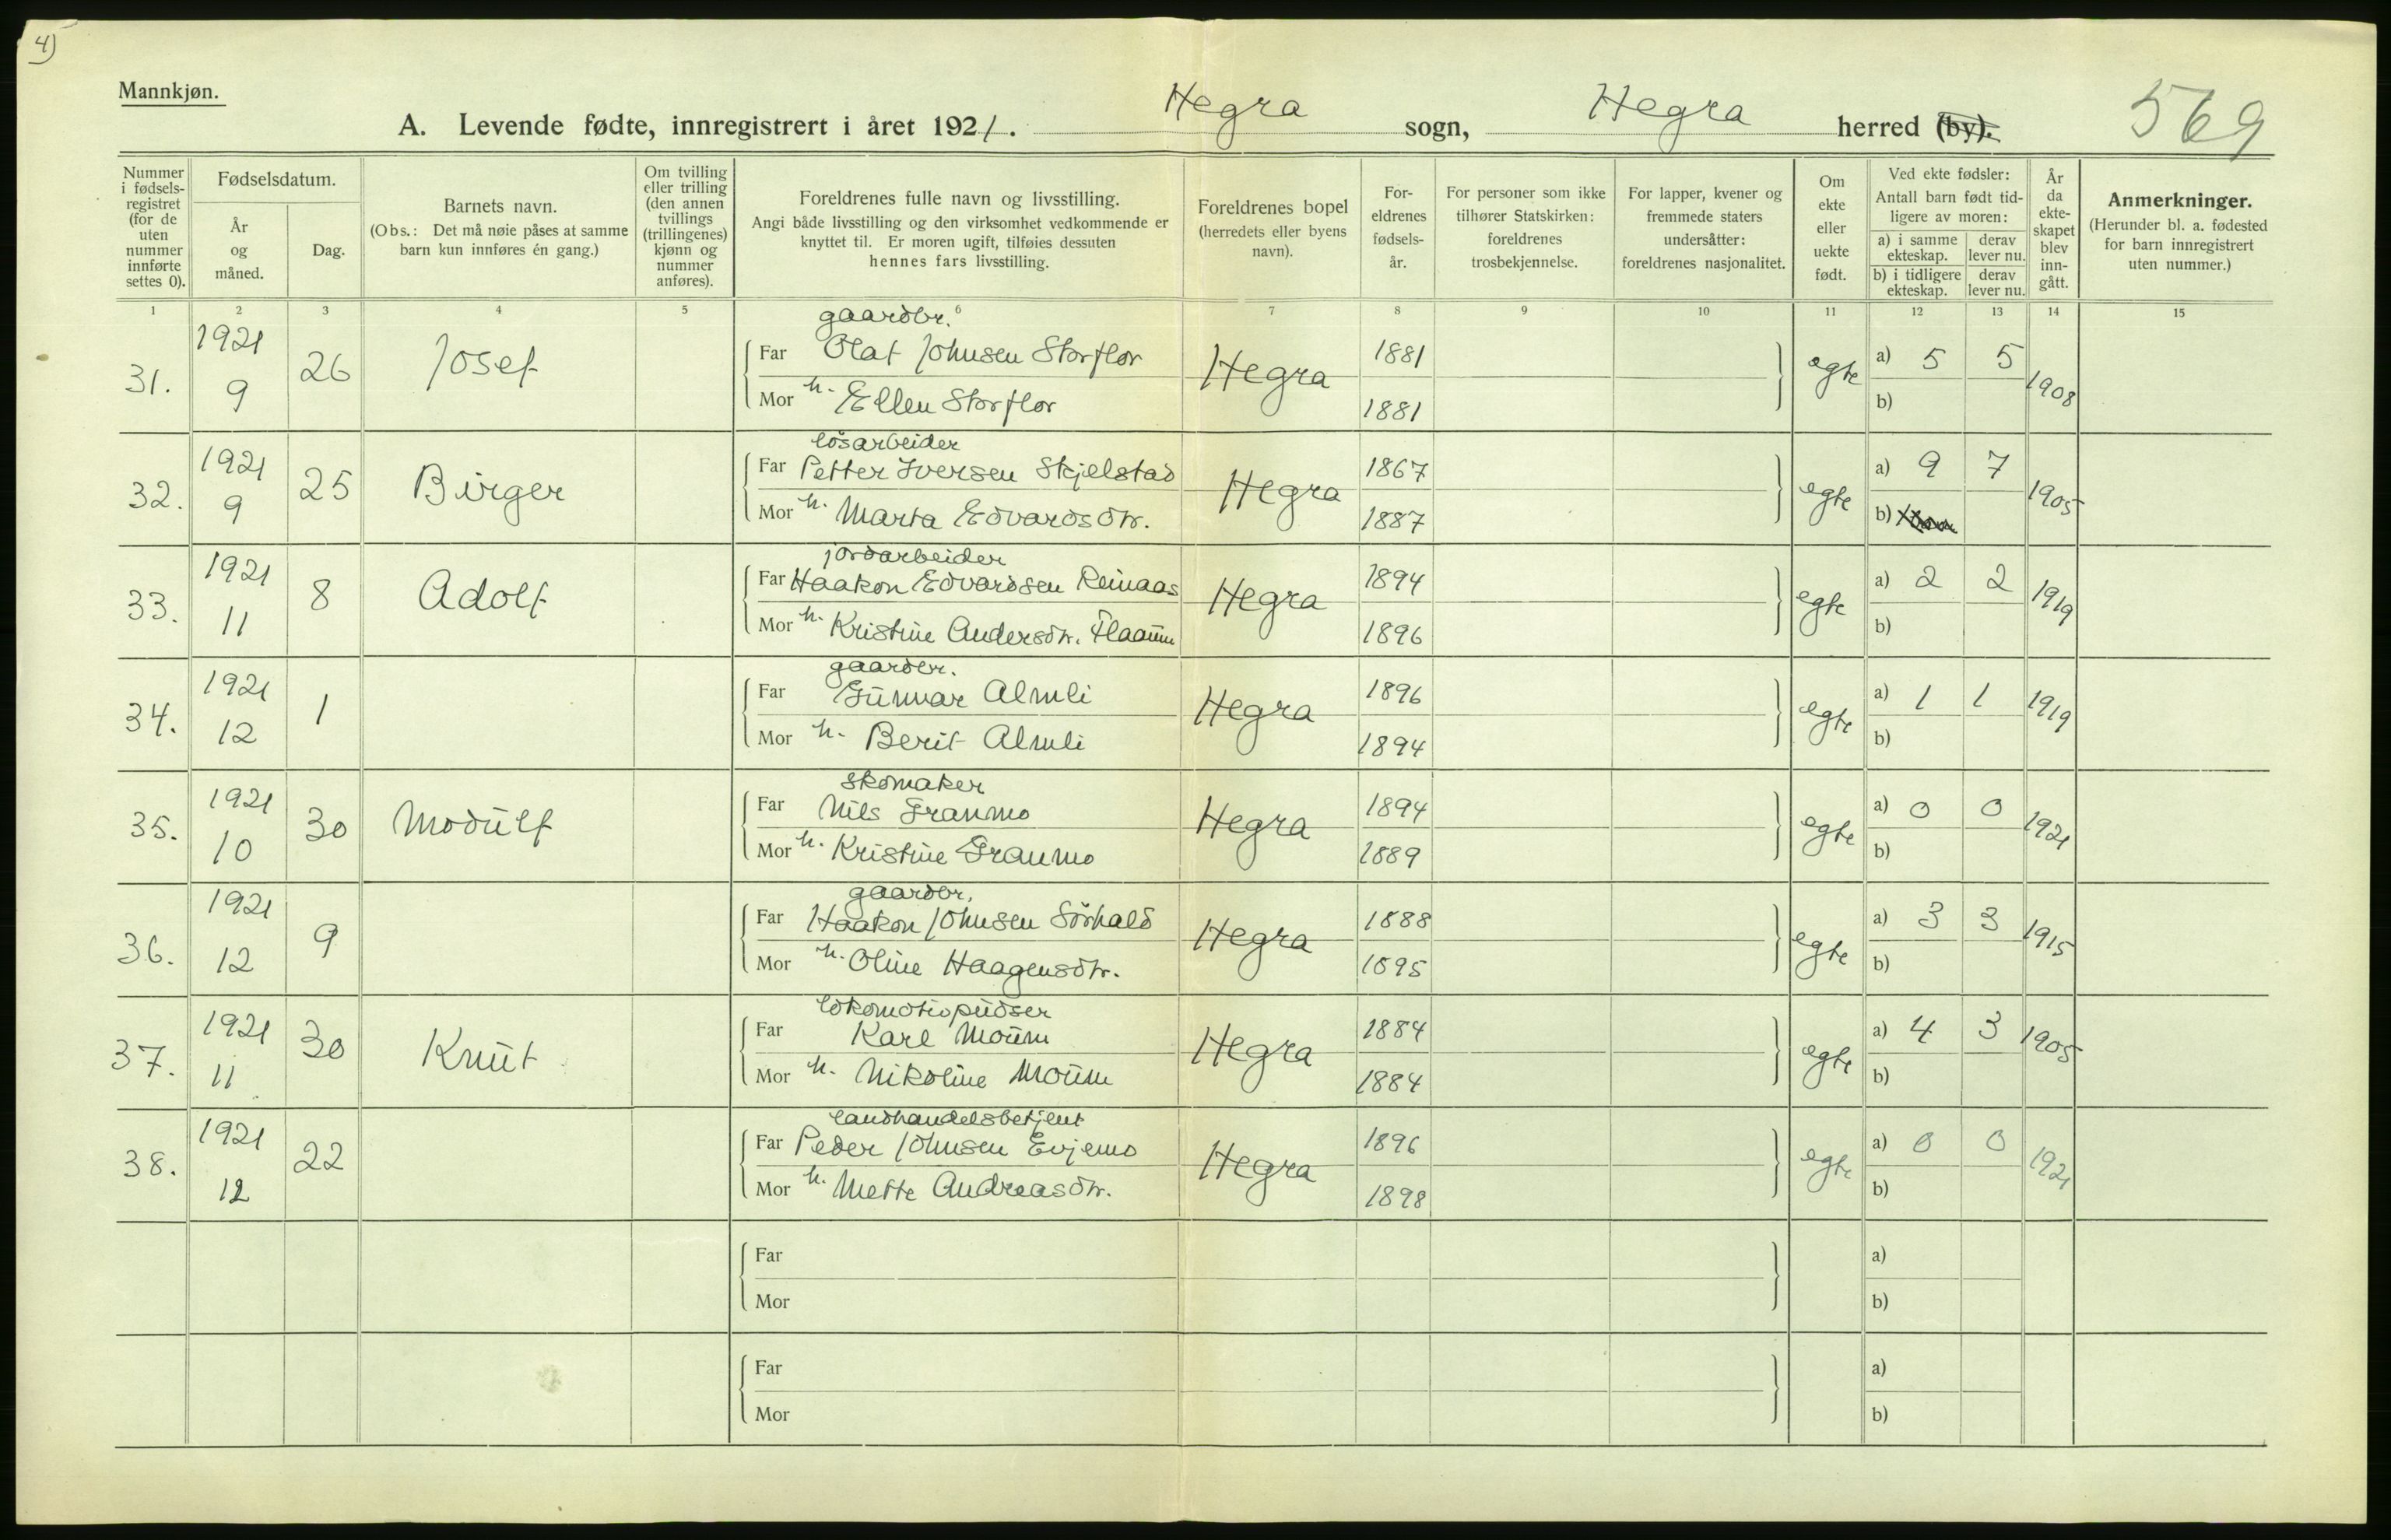 4)
Mannkjøn.
A. Levende fødte, innregistrert i året 1921. Hegra sogn, Hegra herred (by). 569
Nummer i fødsels-registret (for de uten nummer innførte settes 0).
Fødselsdatum.
År og måned.
Dag.
Barnets navn.
(Obs.: Det må nøie påses at samme barn kun innføres én gang.)
Om tvilling eller trilling (den annen tvillings (trillingenes) kjønn og nummer anføres).
Foreldrenes fulle navn og livsstilling.
Angi både livsstilling og den virksomhet vedkommende er knyttet til. Er moren ugift, tilføies dessuten hennes fars livsstilling.
Foreldrenes bopel (herredets eller byens navn).
For-eldrenes fødsels-år.
For personer som ikke tilhører Statskirken: foreldrenes trosbekjennelse.
For lapper, kvener og fremmede staters undersåtter: foreldrenes nasjonalitet.
Om ekte eller uekte født.
Ved ekte fødsler:
Antall barn født tid-ligere av moren:
a) i samme ekteskap. derav lever nu.
b) i tidligere ekteskap. derav lever nu.
År da ekte-skapet blev inn-gått.
Anmerkninger.
(Herunder bl. a. fødested for barn innregistrert uten nummer.)
1 2 3 4 5 6 7 8 9 10 11 12 13 14 15
gaardbr.
31. 1921 9 26 Josef Far Olaf Johnsen Storflor Hegra 1881 egte a) 5 5 1908
Mor h. Ellen Storflor 1881 b)
løsarbeider
32. 1921 9 25 Birger Far Petter Iversen Skjelstad Hegra 1867 egte a) 9 7 1905
Mor h. Marta Edvardsdtr. 1887 b)
jordarbeider
33. 1921 11 8 Adolf Far Haakon Edvardsen Reinaas Hegra 1894 egte a) 2 2 1919
Mor h. Kristine Andersdtr. Flaamm 1896 b)
gaardbr.
34. 1921 12 1 Far Gunnar Almli Hegra 1896 egte a) 1 1 1919
Mor h. Berit Almli 1894 b)
skomaker
35. 1921 10 30 Modulf Far Nils Granmo Hegra 1894 egte a) 0 0 1921
Mor h. Kristine Granmo 1889 b)
gaardbr.
36. 1921 12 9 Far Haakon Johnsen Sørhald Hegra 1888 egte a) 3 3 1915
Mor h. Oline Haagensdtr. 1895 b)
lokomotivpudser
37. 1921 11 30 Knut Far Karl Moum Hegra 1884 egte a) 4 3 1905
Mor h. Nikoline Moum 1884 b)
landhandelsbetjent
38. 1921 12 22 Far Peder Johnsen Evjemo Hegra 1896 egte a) 0 0 1921
Mor h. Mette Andreasdtr. 1898 b)
Far a)
Mor b)
Far a)
Mor b)